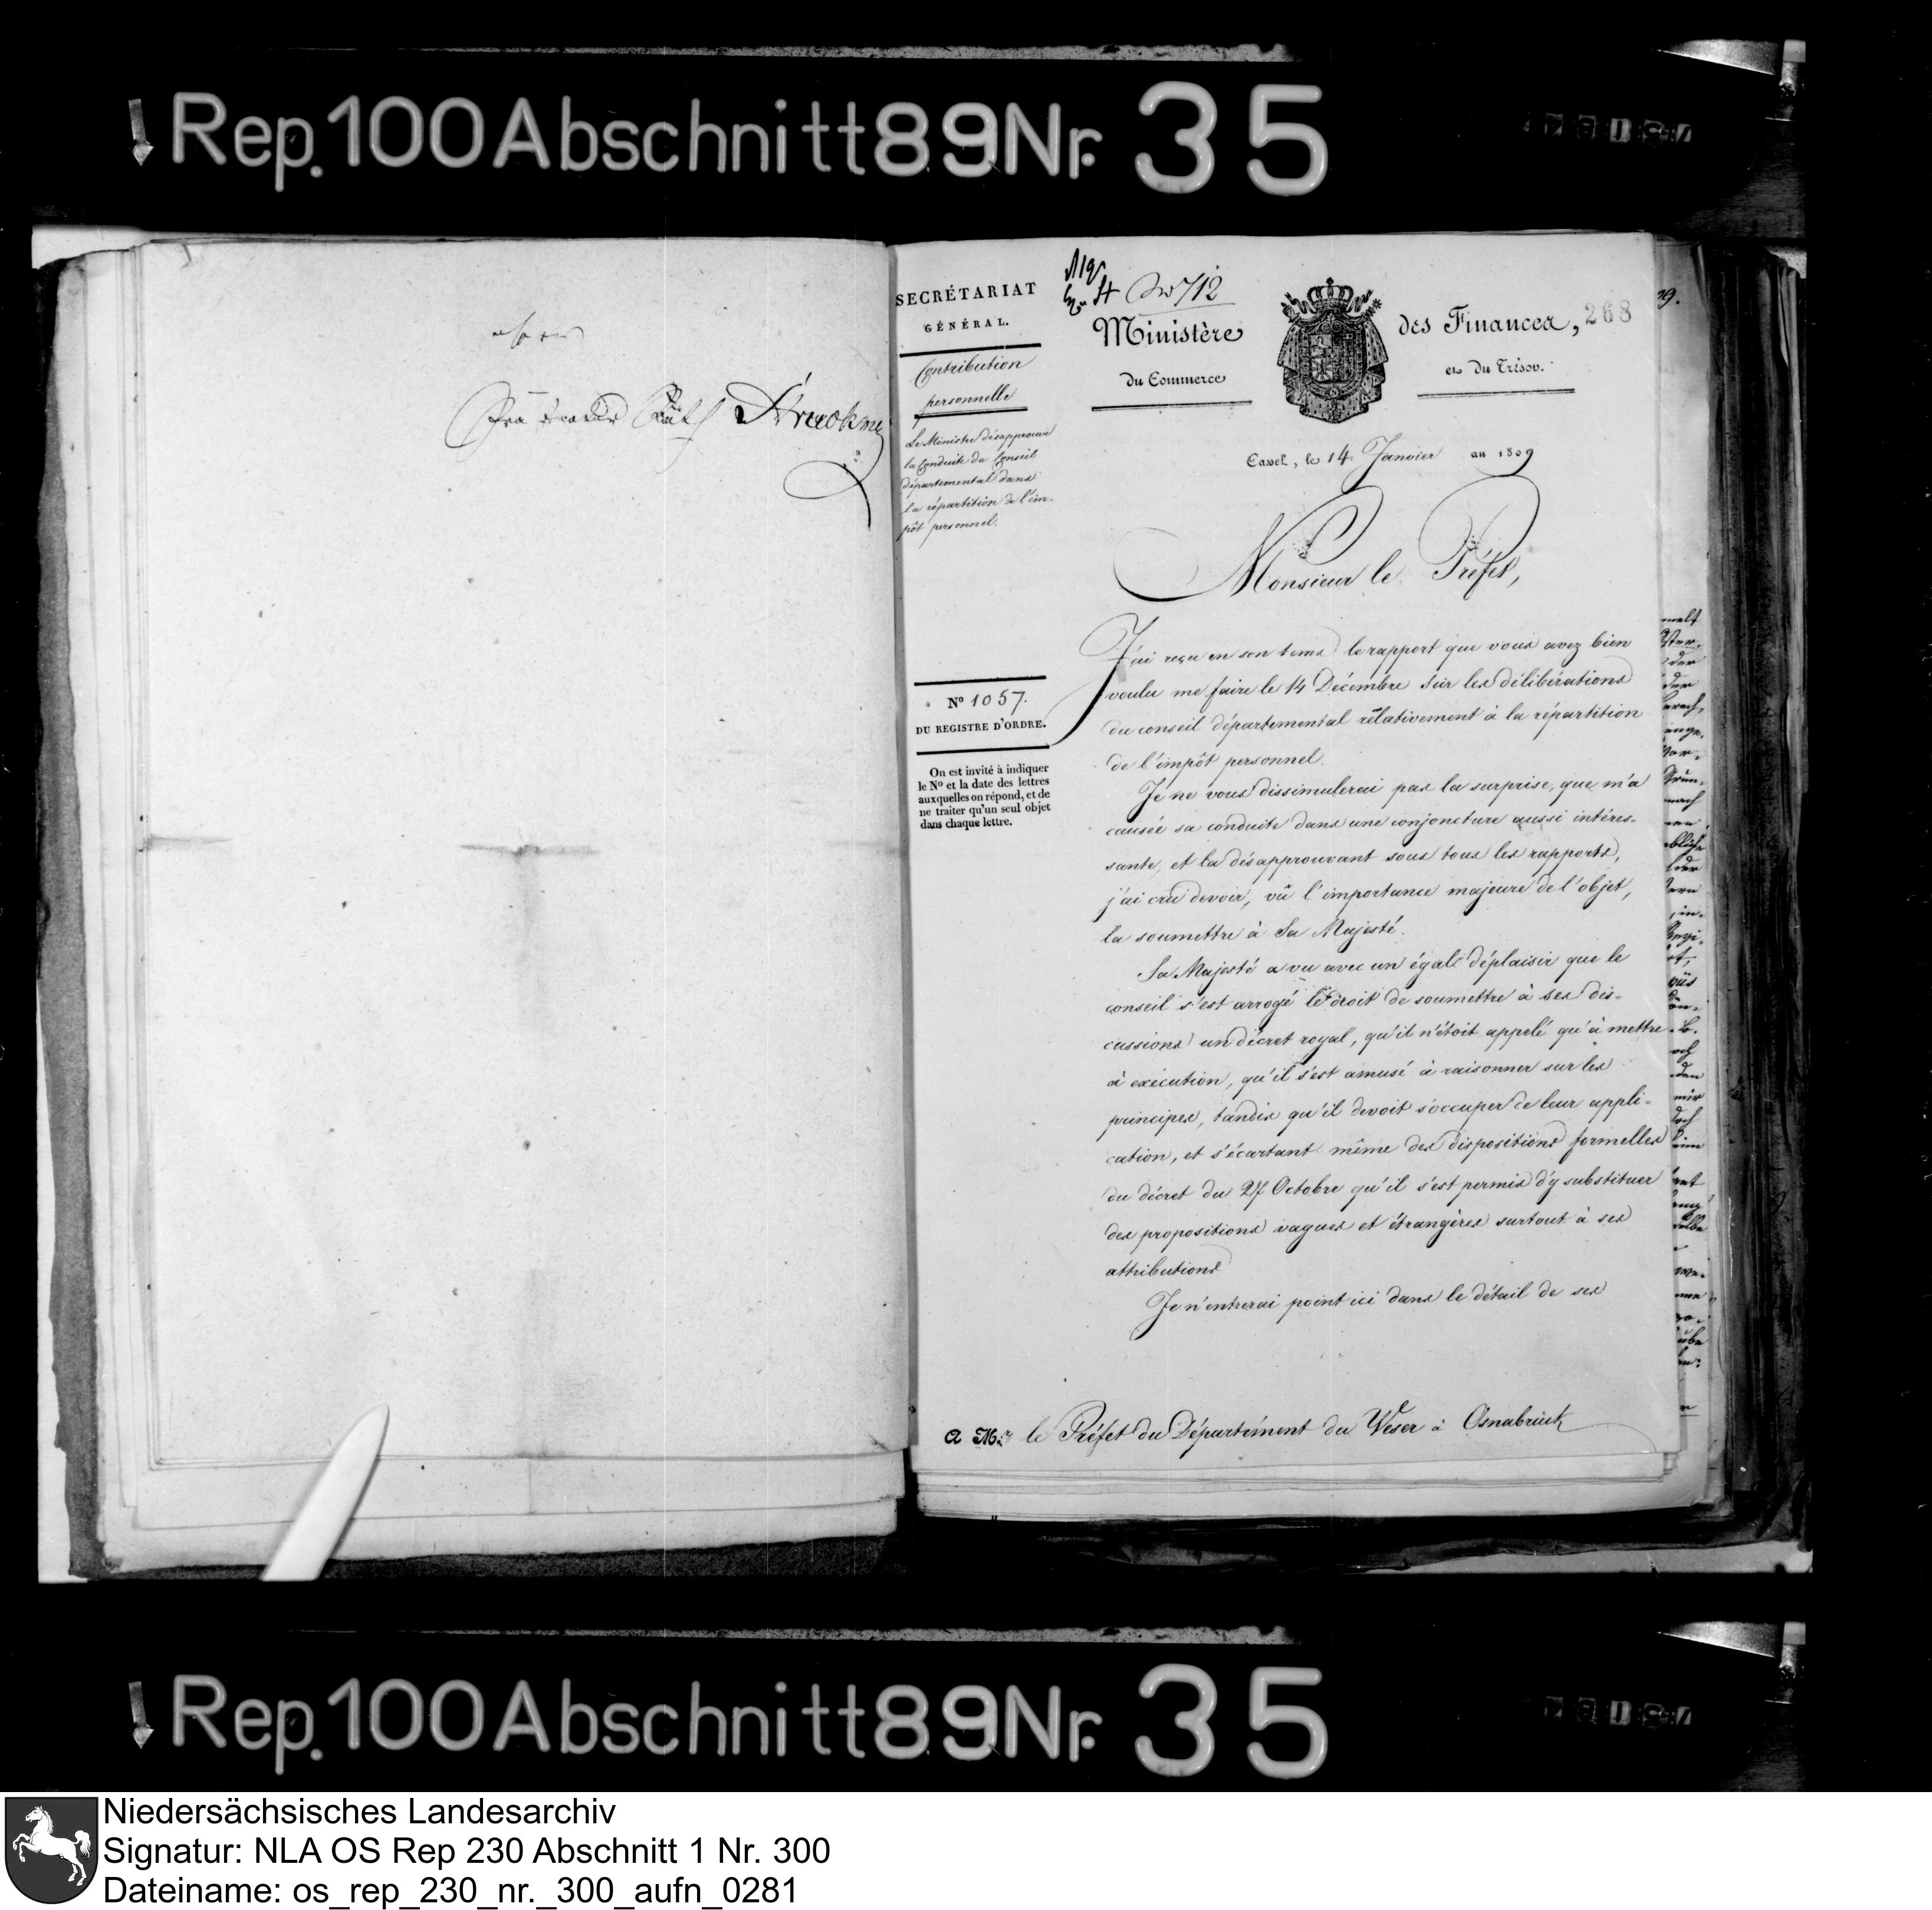 Rep. 100 Abschnitt 89 Nr. 35
SECRÉTARIAT
GÉNÉRAL.
Contribution
personnelle
Le Ministre désapprouve
la Conduite du Conseil
départemental dans
la répartition de l'im-
pôt personnel.
N° 1057.
DU REGISTRE D'ORDRE.
On est invité à indiquer
le N° et la date des lettres
auxquelles on répond, et de
ne traiter qu'un seul objet
dans chaque lettre.
712
268
Ministère des Finances,
du Commerce et du Trésor.
Cassel, le 14 Janvier an 1809
Monsieur le Préfet,
J'ai reçu en son tems le rapport que vous avez bien
voulu me faire le 14 Décembre sur les délibérations
du conseil départemental rélativement à la répartition
de l'impôt personnel.
Je ne vous dissimulerai pas la surprise, que m'a
causée sa conduite dans une conjoncture aussi intéres=
sante, et la désapprouvant sous tous les rapports,
j'ai crû devoir, vû l'importance majeure de l'objet,
la soumettre à Sa Majesté.
Sa Majesté a vu avec un égal déplaisir que le
conseil s'est arrogé le droit de soumettre à ses dis=
cussions un décret royal, qu'il n'étoit appelé qu'à mettre
à exécution, qu'il s'est amusé à raisonner sur les
principes, tandis qu'il devoit s'occuper de leur appli=
cation, et s'écartant même des dispositions formelles
du décret du 27 Octobre qu'il s'est permis d'y substituer
des propositions vagues et étrangères surtout à ses
attributions
Je n'entrerai point ici dans le détail de ses
A Mr. le Préfet du Département du Weser à Osnabrück
Rep. 100 Abschnitt 89 Nr. 35
Niedersächsisches Landesarchiv
Signatur: NLA OS Rep 230 Abschnitt 1 Nr. 300
Dateiname: os_rep_230_nr._300_aufn_0281